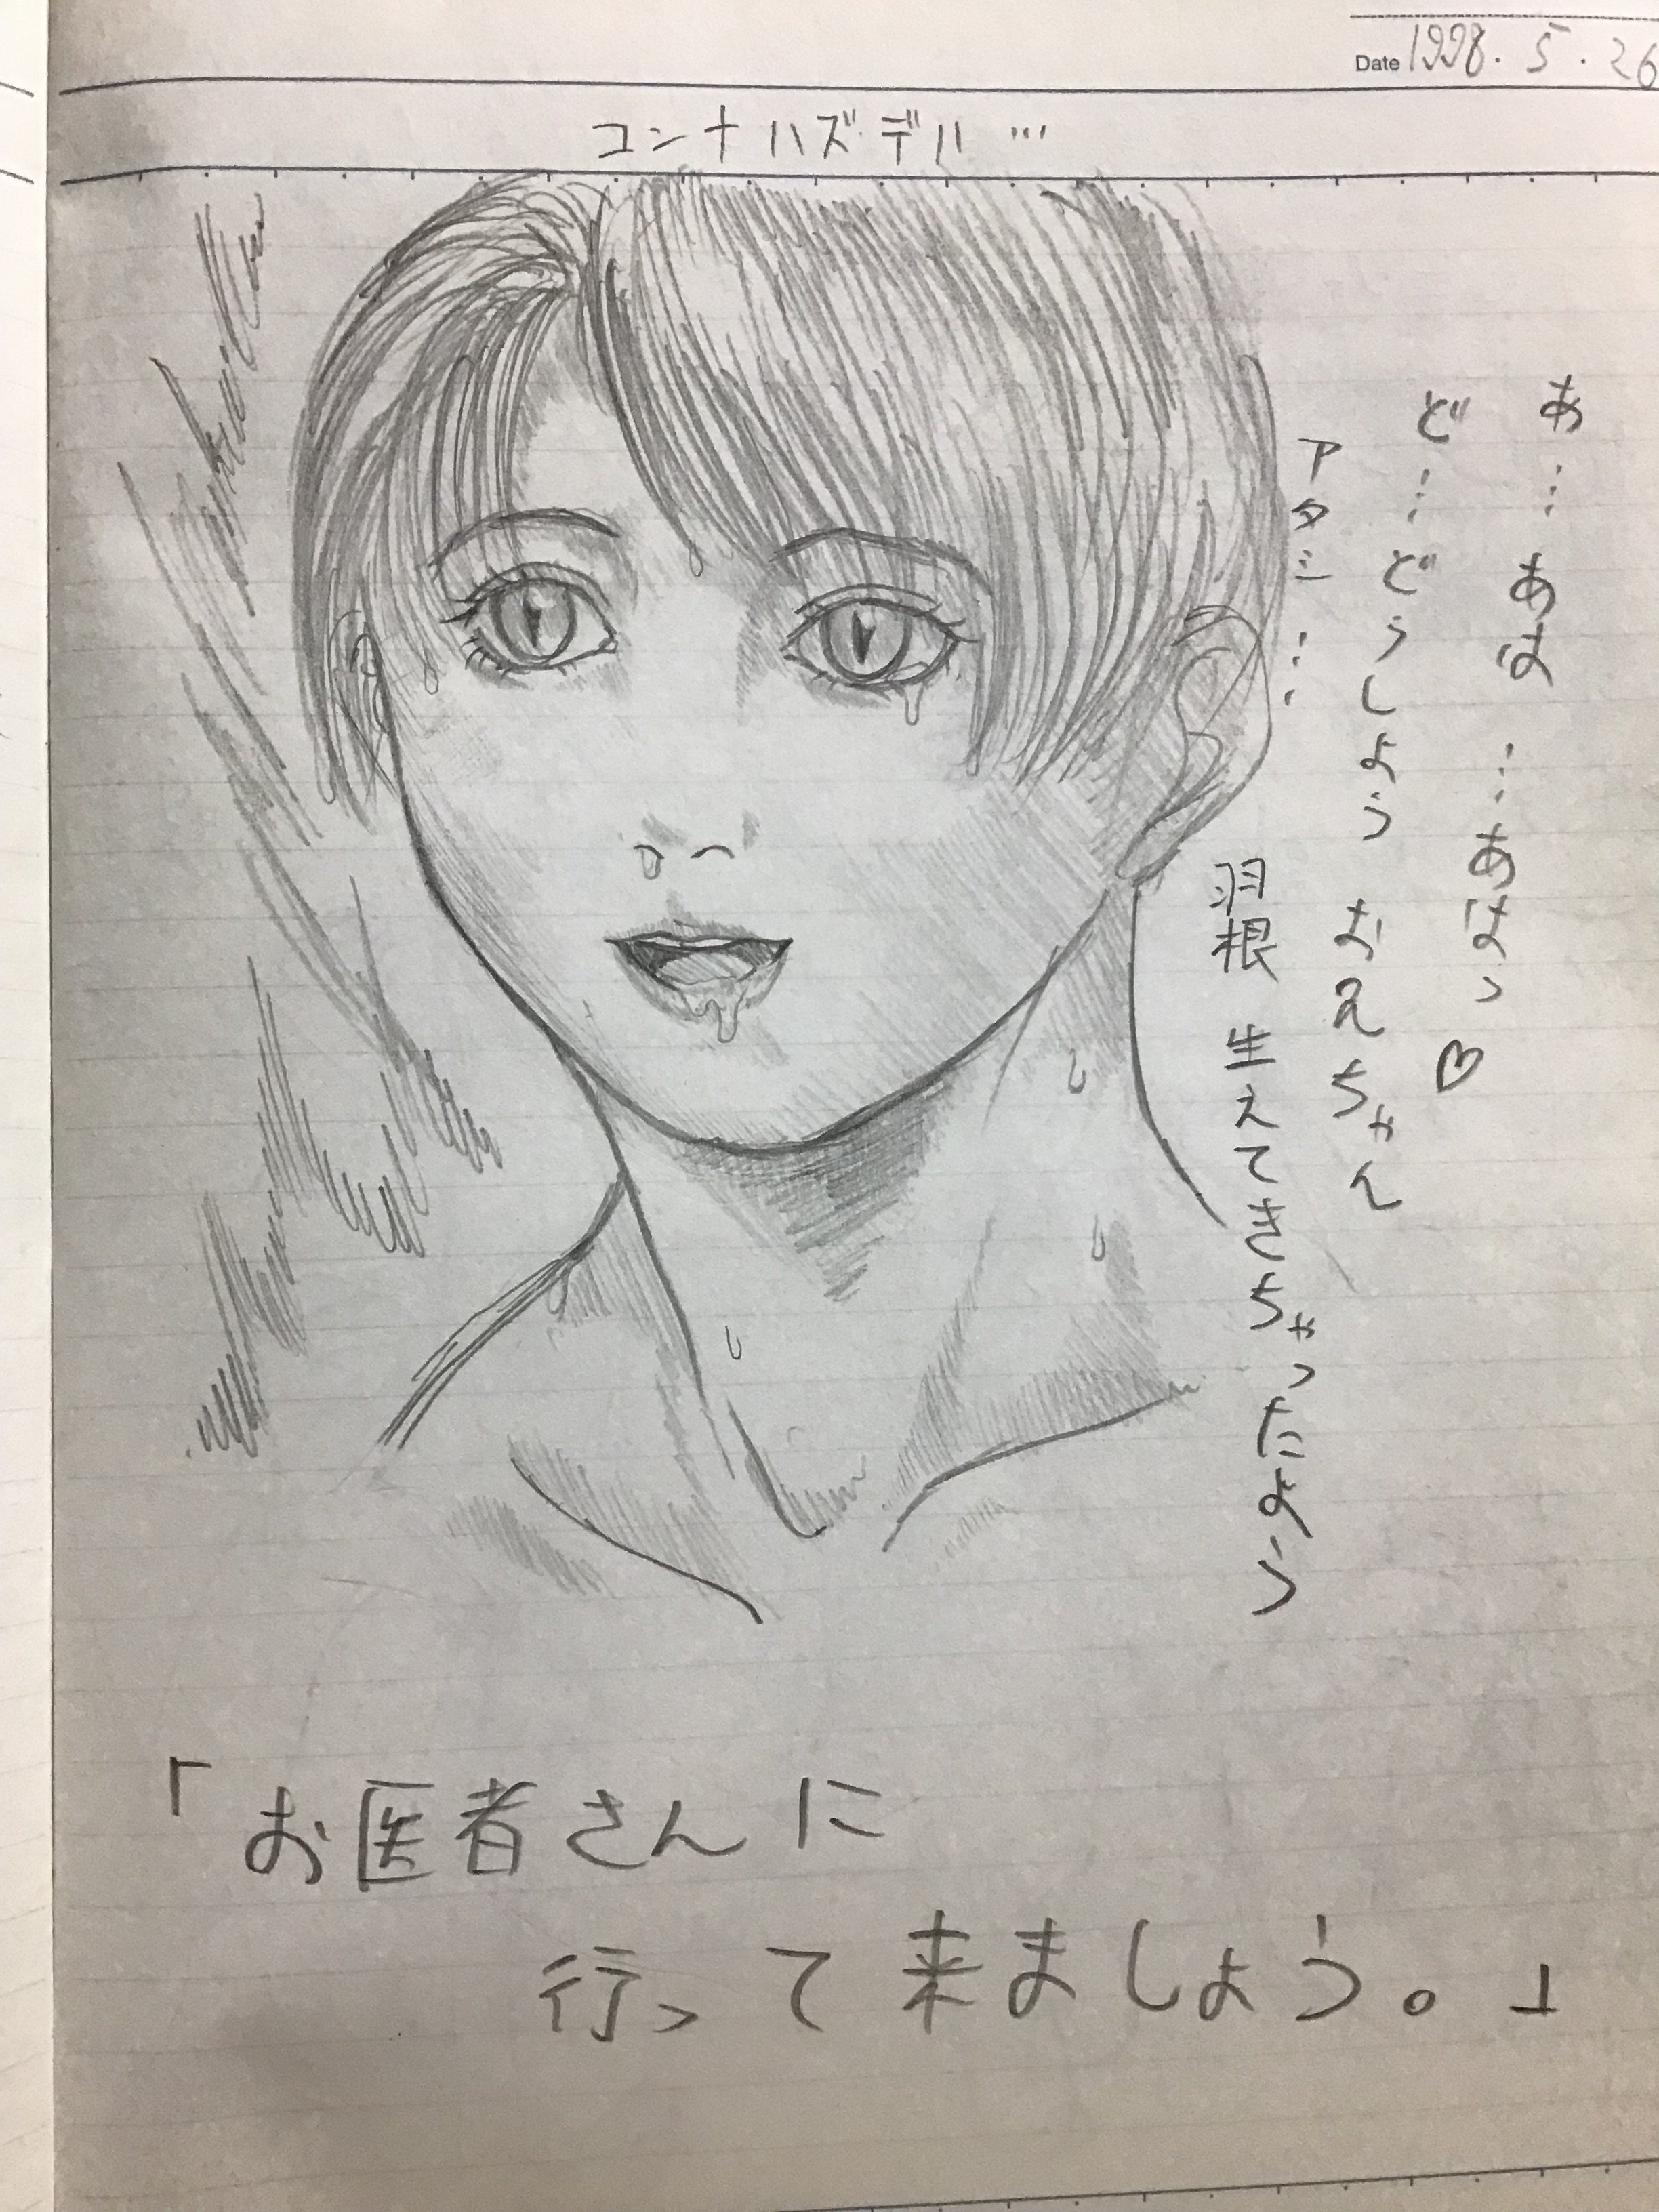 Date 1998. 5. 26
コンナハズデハ…
あ…あは…あはっ♡
ど…どうしよう おえちゃん
アタシ…
羽根 生えてきちゃったよう
「お医者さんに
行って来ましょう。」